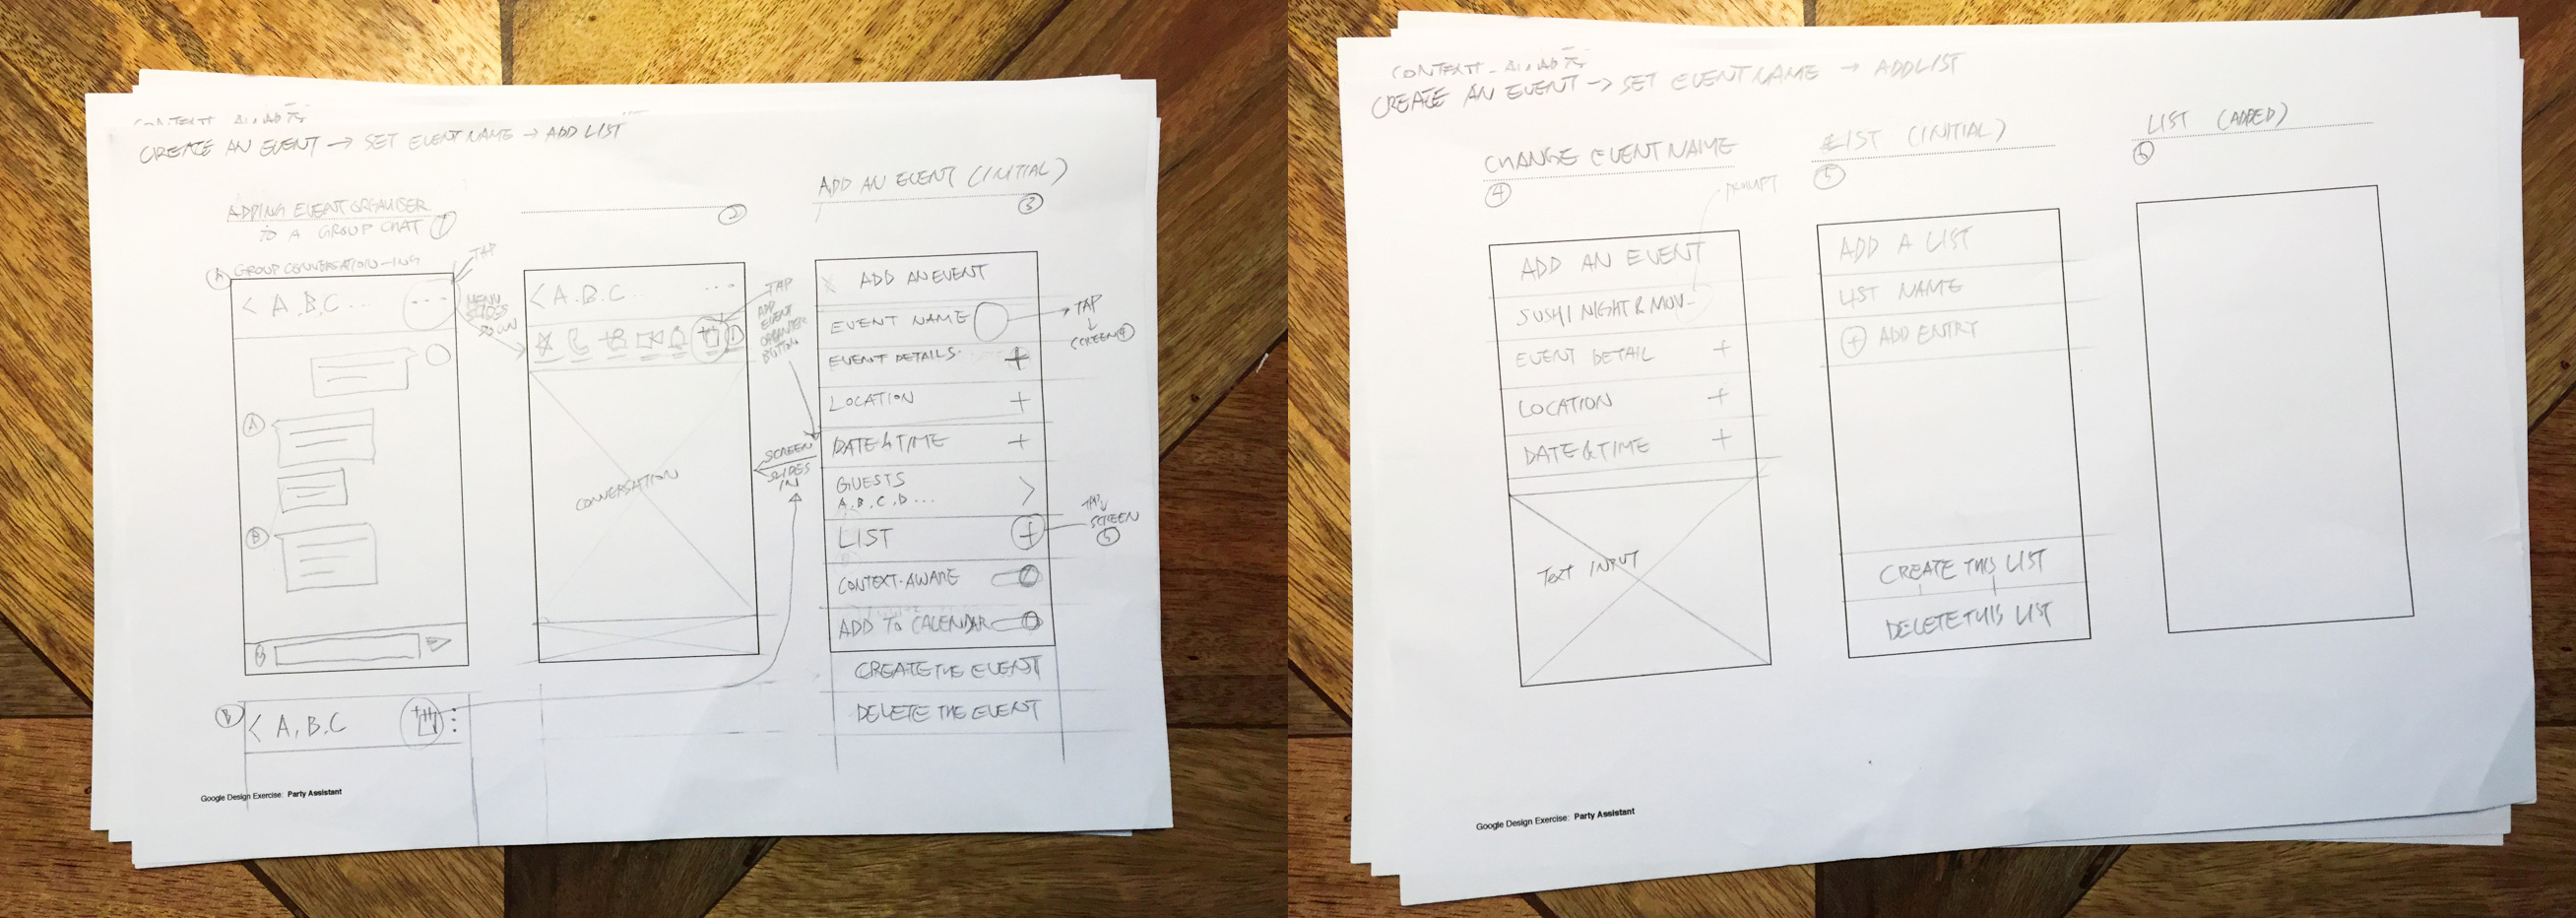 CREATE AN EVENT → SET EVENT NAME → ADD LIST
ADDING EVENT ORGANISER
TO A GROUP CHAT 1
A GROUP CONVERSATION-ING
TAP
< A.B.C ...
MENU
SLIDES
DOWN
A
B
B < A, B, C
2
< A.B.C ...
TAP
ADD
EVENT
ORGANISER
BUTTON
CONVERSATION
SCREEN
SLIDES
IN
ADD AN EVENT (INITIAL)
3
X ADD AN EVENT
EVENT NAME
TAP
↓
SCREEN 4
EVENT DETAILS +
LOCATION +
DATE & TIME +
GUESTS
A, B, C, D ... >
LIST +
TAP
SCREEN
5
CONTEXT-AWARE
ADD TO CALENDAR
CREATE THE EVENT
DELETE THE EVENT
Google Design Exercise: Party Assistant
CREATE AN EVENT → SET EVENT NAME → ADD LIST
CHANGE EVENT NAME
4
PROMPT
ADD AN EVENT
SUSHI NIGHT & MOV-
EVENT DETAIL +
LOCATION +
DATE & TIME +
TEXT INPUT
LIST (INITIAL)
5
ADD A LIST
LIST NAME
+ ADD ENTRY
CREATE THIS LIST
DELETE THIS LIST
LIST (ADDED)
6
Google Design Exercise: Party Assistant